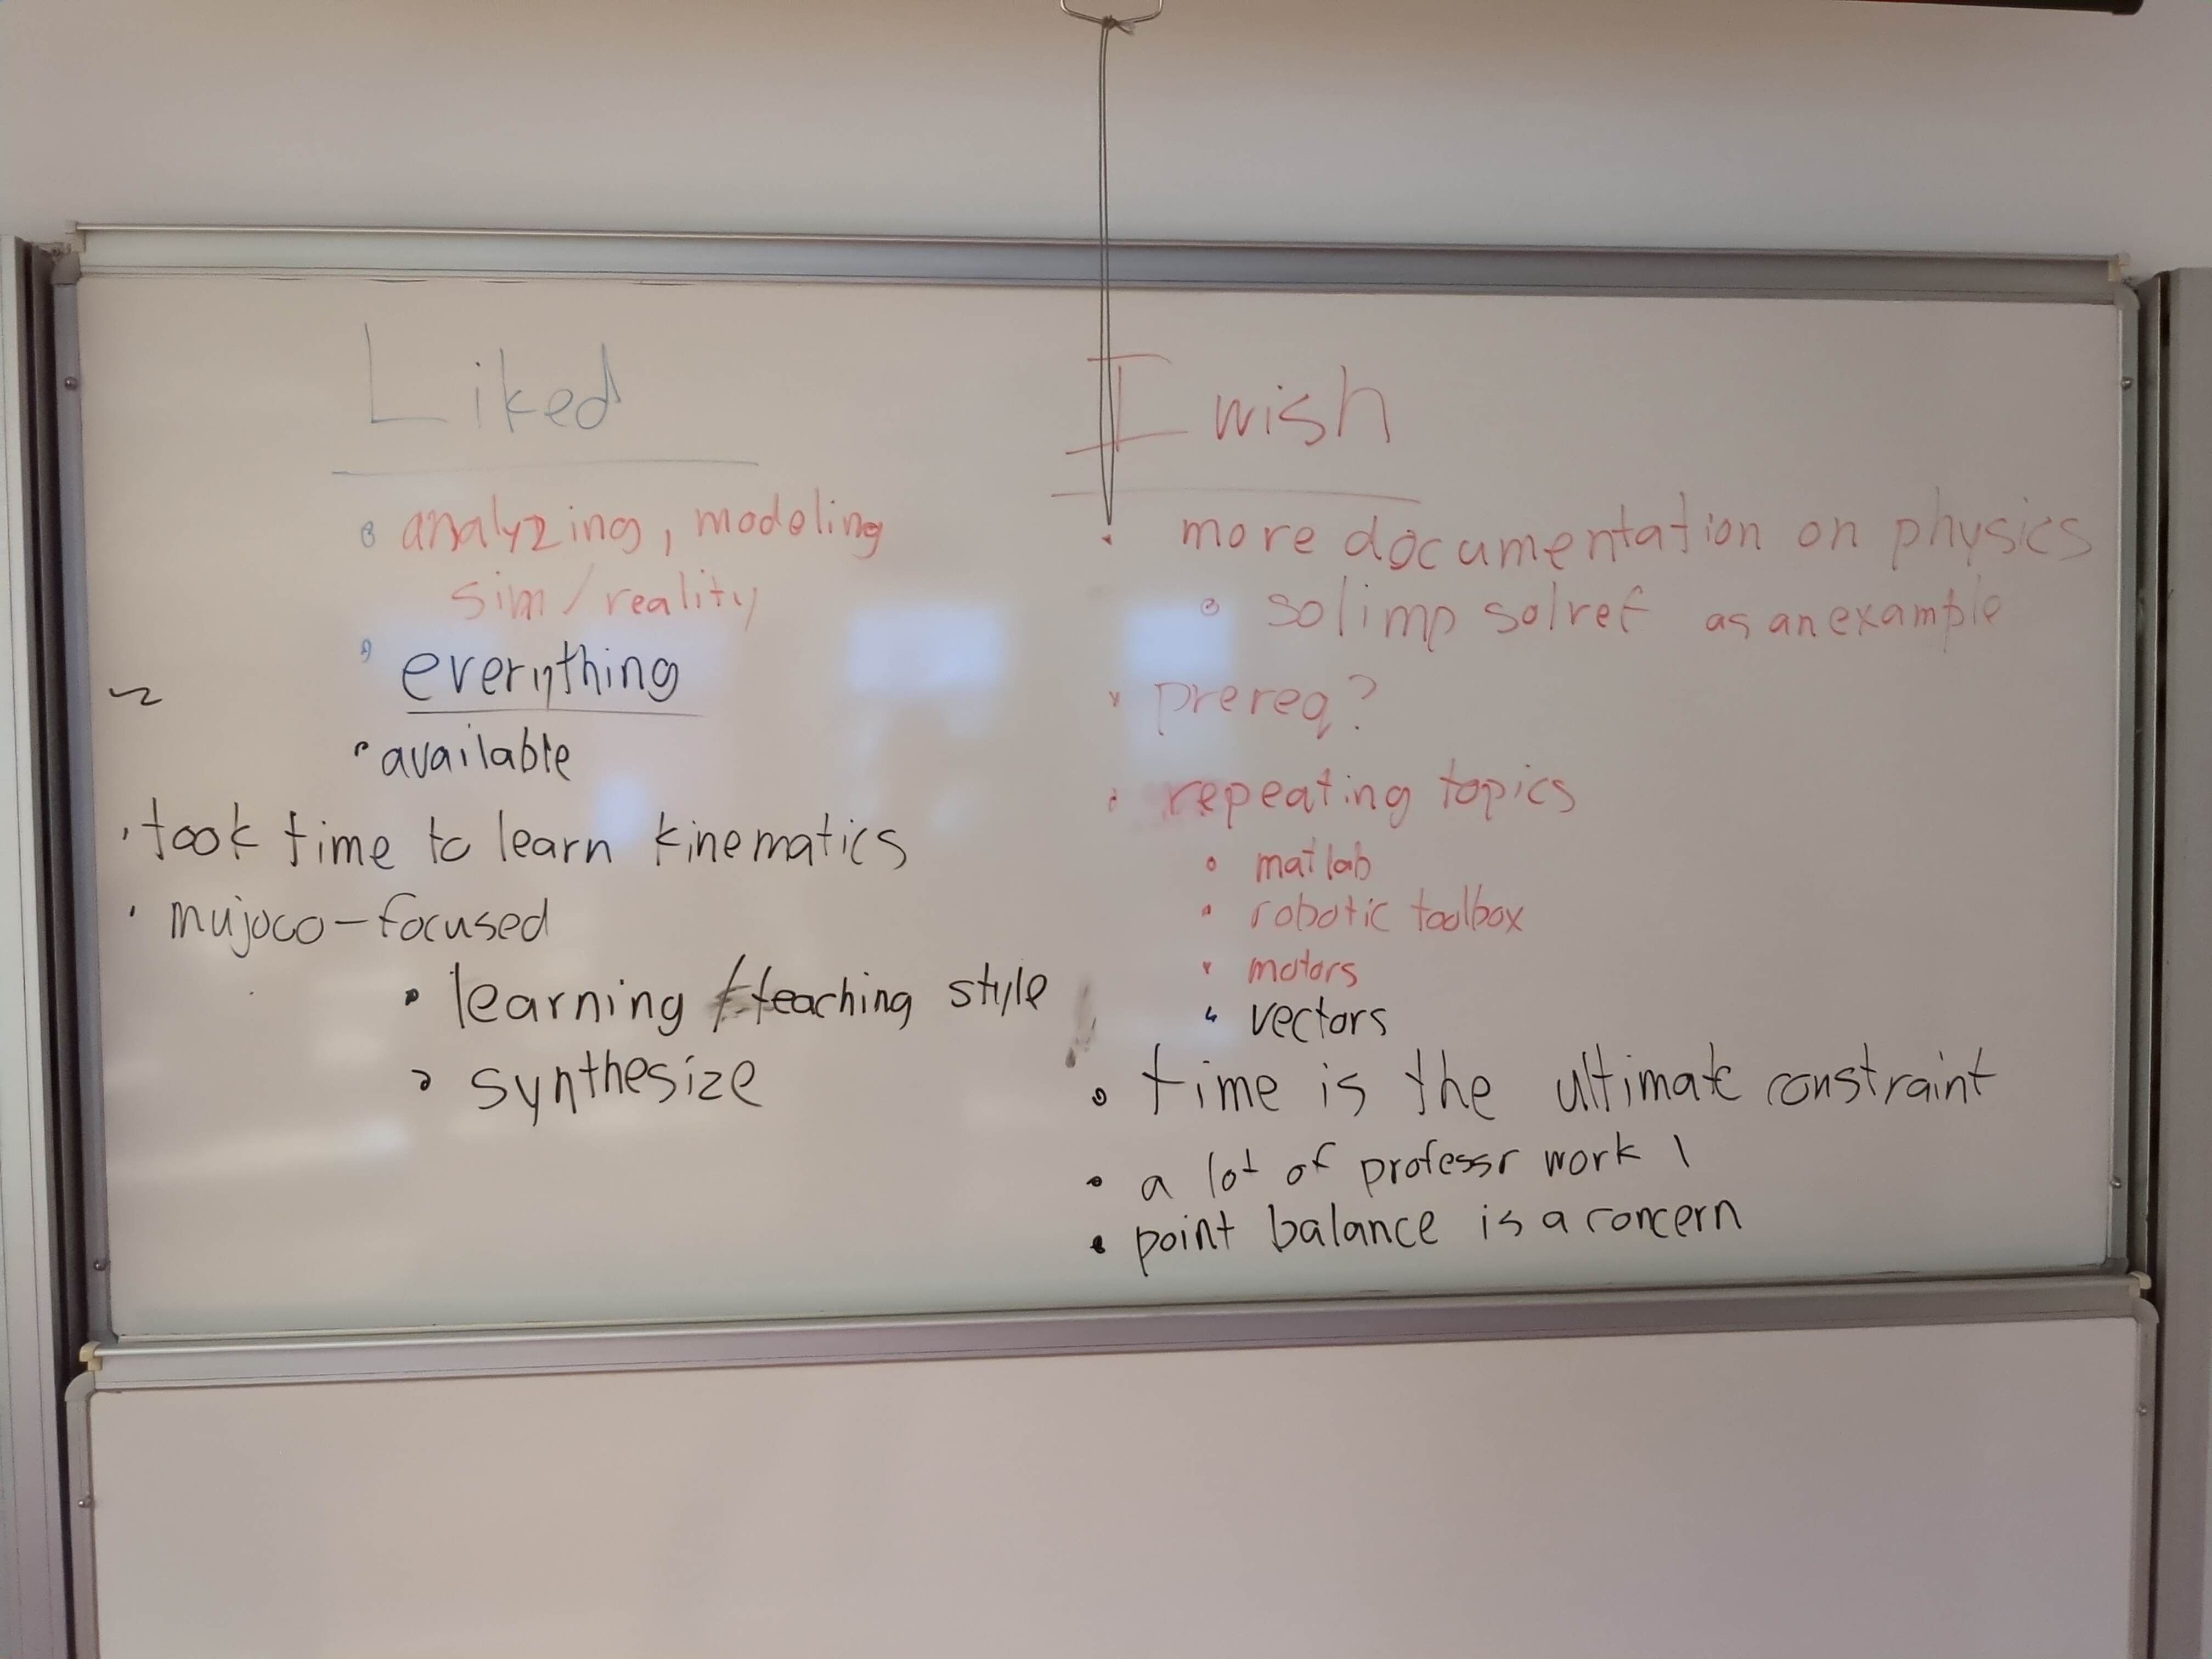 Liked
• analyzing, modeling
sim/reality
• everything
• available
• took time to learn kinematics
• mujoco-focused
• learning /teaching style
• synthesize
I wish
• more documentation on physics
• solimp solref as an example
• prereq?
• repeating topics
• matlab
• robotic toolbox
• motors
• vectors
• time is the ultimate constraint
• a lot of professr work
• point balance is a concern